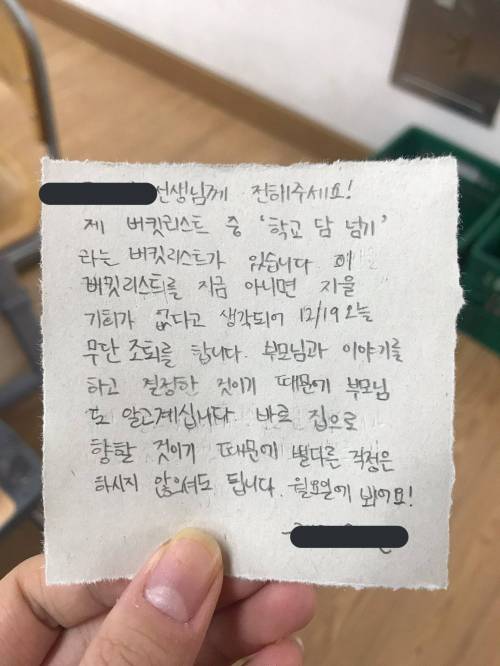 선생님께 전해주세요!
제 버킷리스트 중 '학교 담 넘기'
라는 버킷리스트가 있습니다 이
버킷리스트를 지금 아니면 지울
기회가 없다고 생각되어 12/19 오늘
무단 조퇴를 합니다. 부모님과 이야기를
하고 결정한 것이기 때문에 부모님
도 알고계십니다 바로 집으로
향할 것이기 때문에 별다른 걱정은
하시지 않으셔도 됩니다. 월요일에 봬어요!